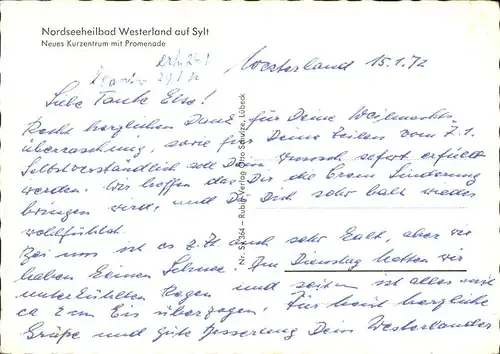 Nordseeheilbad Westerland auf Sylt
Neues Kurzentrum mit Promenade
Westerland 15.1.72
Liebe Tante Else!
Recht herzlichen Dank für Deine Weihnachts-
überraschung, sowie für Deine Zeilen vom 7.1.
Selbstverständlich soll Dein Wunsch sofort erfüllt
werden. Wir hoffen das Dir die Creme Linderung
bringen wird, und Du Dich sehr bald wieder
wohlfühlst.
Bei uns ist es z.Zt auch sehr kalt, aber wir
haben keinen Schnee. Am Dienstag hatten wir
unterkühlten Regen und seitem ist alles mit
ca 2 cm Eis überzogen. Für heut herzliche
Grüße und gute Besserung Dein Westerlander
Nr. SY 364 – Rubin-Verlag Otto Schulze, Lübeck